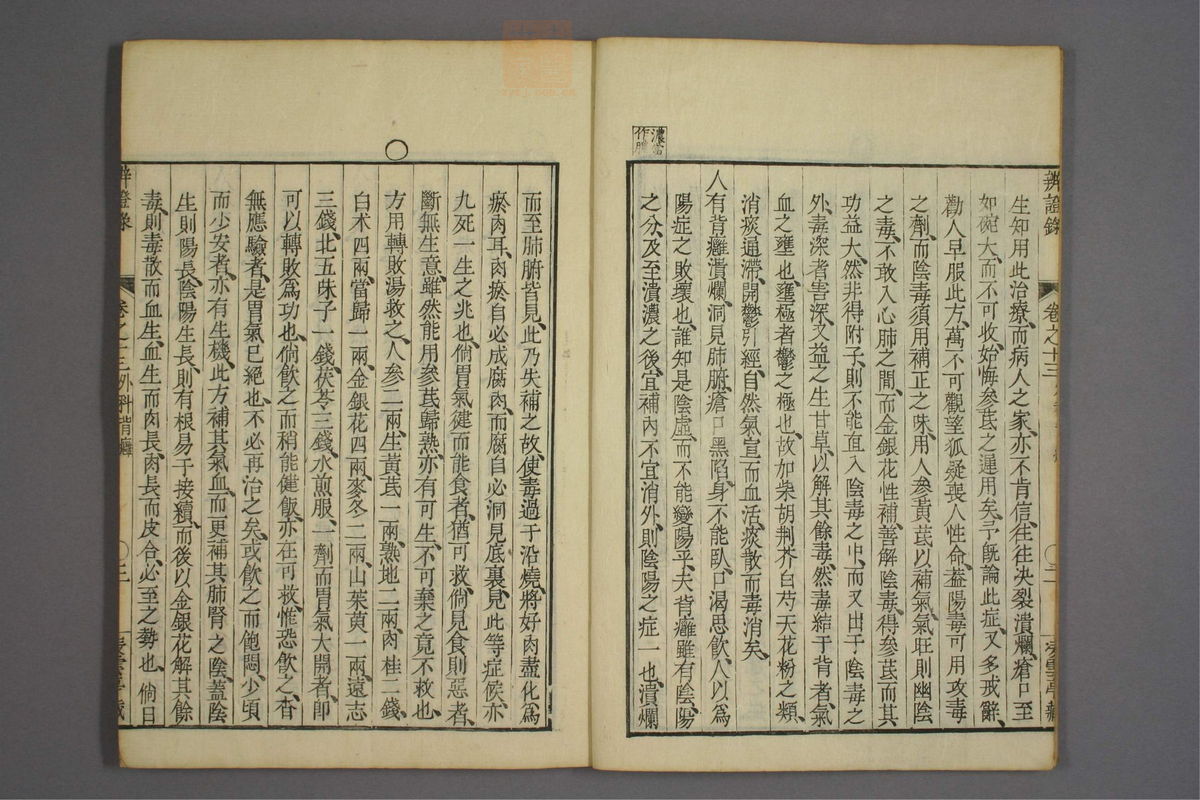 濃當
作膿
辨證錄 卷之十三
生知用此治療而病人之家亦不肯信往往決裂潰爛瘡口至
如碗大而不可收始悔參茋之遲用矣予既論此症又多戒辭
勸人早服此方萬不可觀望狐疑喪人性命蓋陽毒可用攻毒
之劑而陰毒須用補正之味用人參黃茋以補氣氣旺則幽陰
之毒不敢入心肺之間而金銀花性補善解陰毒得參茋而其
功益大然非得附子則不能直入陰毒之中而又出于陰毒之
外毒深者害深又益之生甘草以解其餘毒然毒結于背者氣
血之壅也壅極者鬱之極也故加柴胡荊芥白芍天花粉之類
消痰通滯開鬱引經自然氣宣而血活痰散而毒消矣
人有背癰潰爛洞見肺腑瘡口黑陷身不能臥口渴思飲人以為
陽症之敗壞也誰知是陰虛而不能變陽乎夫背癰雖有陰陽
之分及至潰濃之後宜補內不宜消外則陰陽之症一也潰爛
而至肺腑皆見此乃失補之故使毒過于沿燒將好肉盡化為
瘀肉耳肉瘀自必成腐肉而腐自必洞見底裏見此等症候亦
九死一生之兆也倘胃氣健而能食者猶可救倘見食則惡者
斷無生意雖然能用參茋歸熟亦有可生不可棄之竟不救也
方用轉敗湯救之人參二兩生黃茋一兩熟地二兩肉桂二錢
白术四兩當歸一兩金銀花四兩麥冬二兩山茱萸一兩遠志
三錢北五味子一錢茯苓三錢水煎服一劑而胃氣大開者即
可以轉敗為功也倘飲之而稍能健飯亦在可救惟恐飲之杳
無應驗者是胃氣已絕也不必再治之矣或飲之而飽悶少頃
而少安者亦有生機此方補其氣血而更補其肺腎之陰蓋陰
生則陽長陰陽生長則有根易于接續而後以金銀花解其餘
毒則毒散而血生血生而肉長肉長而皮合必至之勢也倘日
辨證錄 卷之十三外科背癰 三